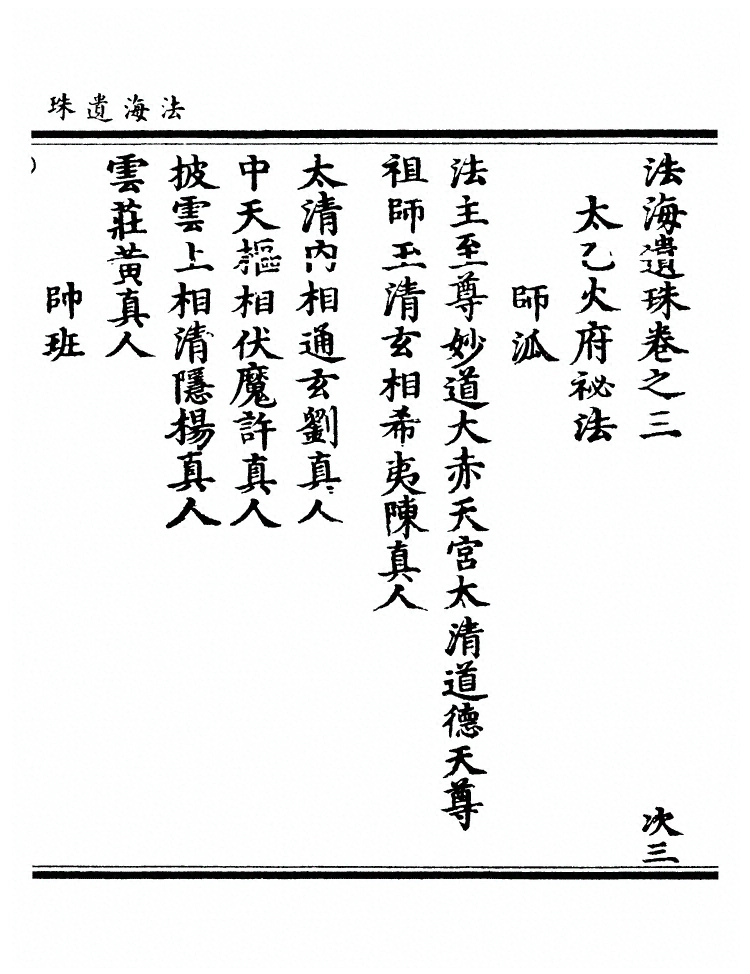 法海遺珠
法海遺珠卷之三
次三
太乙火府祕法
師泒
法主至尊妙道大赤天宮太清道德天尊
祖師玉清玄相希夷陳真人
太清內相通玄劉真人
中天樞相伏魔許真人
披雲上相清隱楊真人
雲莊黃真人
帥班